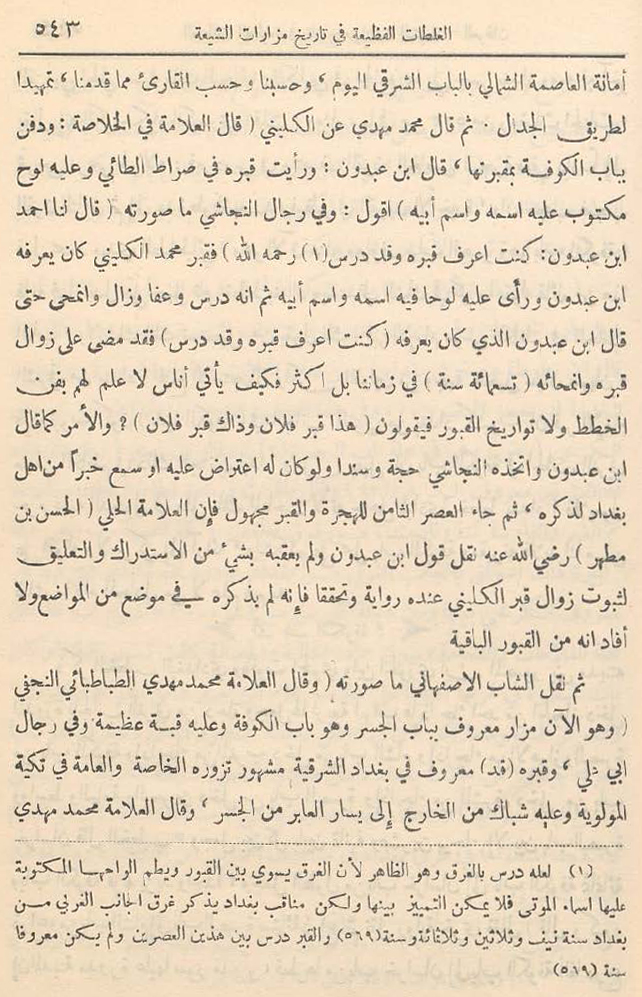 الغلطات الفظيعة في تاريخ مزارات الشيعة ٥٤٣
أمانة العاصمة الشمالي بالباب الشرقي اليوم ، وحسبنا وحسب القارئ مما قدمنا ، تمهيدا
لطريق الجدال . ثم قال محمد مهدي عن الكليني ( قال العلامة في الخلاصة : ودفن
بباب الكوفة بمقبرتها ، قال ابن عبدون : ورأيت قبره في صراط الطائي وعليه لوح
مكتوب عليه اسمه واسم أبيه ) اقول : وفي رجال النجاشي ما صورته ( قال لنا احمد
ابن عبدون : كنت اعرف قبره وقد درس (١) رحمه الله ) فقبر محمد الكليني كان يعرفه
ابن عبدون ورأى عليه لوحا فيه اسمه واسم أبيه ثم انه درس وعفا وزال وانمحى حتى
قال ابن عبدون الذي كان يعرفه ( كنت اعرف قبره وقد درس ) فقد مضى على زوال
قبره وانمحائه ( تسعمائة سنة ) في زماننا بل اكثر فكيف يأتي أناس لا علم لهم بفن
الخطط ولا تواريخ القبور فيقولون ( هذا قبر فلان وذاك قبر فلان ) ? والأمر كما قال
ابن عبدون واتخذه النجاشي حجة وسندا ولو كان له اعتراض عليه او سمع خبراً من اهل
بغداد لذكره ، ثم جاء العصر الثامن للهجرة والقبر مجهول فإن العلامة الحلي ( الحسن بن
مطهر ) رضي الله عنه نقل قول ابن عبدون ولم يعقبه بشيء من الاستدراك والتعليق
لثبوت زوال قبر الكليني عنده رواية وتحققا فإنه لم يذكره في موضع من المواضع ولا
أفاد انه من القبور الباقية
ثم نقل الشاب الاصفهاني ما صورته ( وقال العلامة محمد مهدي الطباطبائي النجفي
( وهو الآن مزار معروف بباب الجسر وهو باب الكوفة وعليه قبة عظيمة وفي رجال
ابي علي ، وقبره (قد) معروف في بغداد الشرقية مشهور تزوره الخاصة والعامة في تكية
المولوية وعليه شباك من الخارج إلى يسار العابر من الجسر ، وقال العلامة محمد مهدي
(١) لعله درس بالغرق وهو الظاهر لأن الغرق يسوي بين القبور ويطم الواحها المكتوبة
عليها اسماء الموتى فلا يمكن التمييز بينها ولكن مناقب بغداد يذكر غرق الجانب الغربي من
بغداد سنة نيف وثلاثين وثلاثمائة وسنة (٥٦٩) والقبر درس بين هذين العصرين ولم يكن معروفا
سنة (٥٦٩)